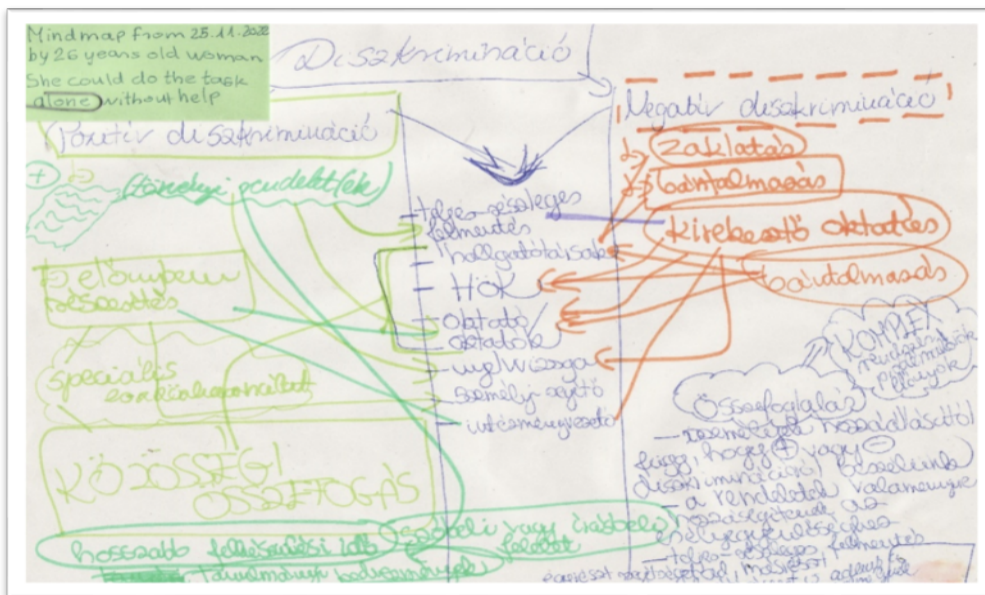 Mindmap from 25.11.2022
by 26 years old woman
She could do the task
alone without help
Diszkrimináció
Pozitív diszkrimináció
+
(törvényi rendelet(ek)
előnyben
részesítés
speciális
KÖZÖSSÉGI
ÖSSZEFOGÁS
hosszabb felkészülési idő
szóbeli vagy írásbeli
felelet
tanulmányi kedvezmények
teljes-részleges
felmentés
hallgatótársak
HÖK
oktató/
oktatók
vizsga
személyi segítő
intézményvezető
Negatív diszkrimináció
zaklatás
bántalmazás
kirekesztő oktatás
bántalmazás
KOMPLEX
Összefoglalás
személyek hozzáállásától
függ, hogy + vagy -
diszkriminációról beszélünk
- a rendeletek valamennyire
az
esélyegyenlőséghez
- teljes-részleges felmentés